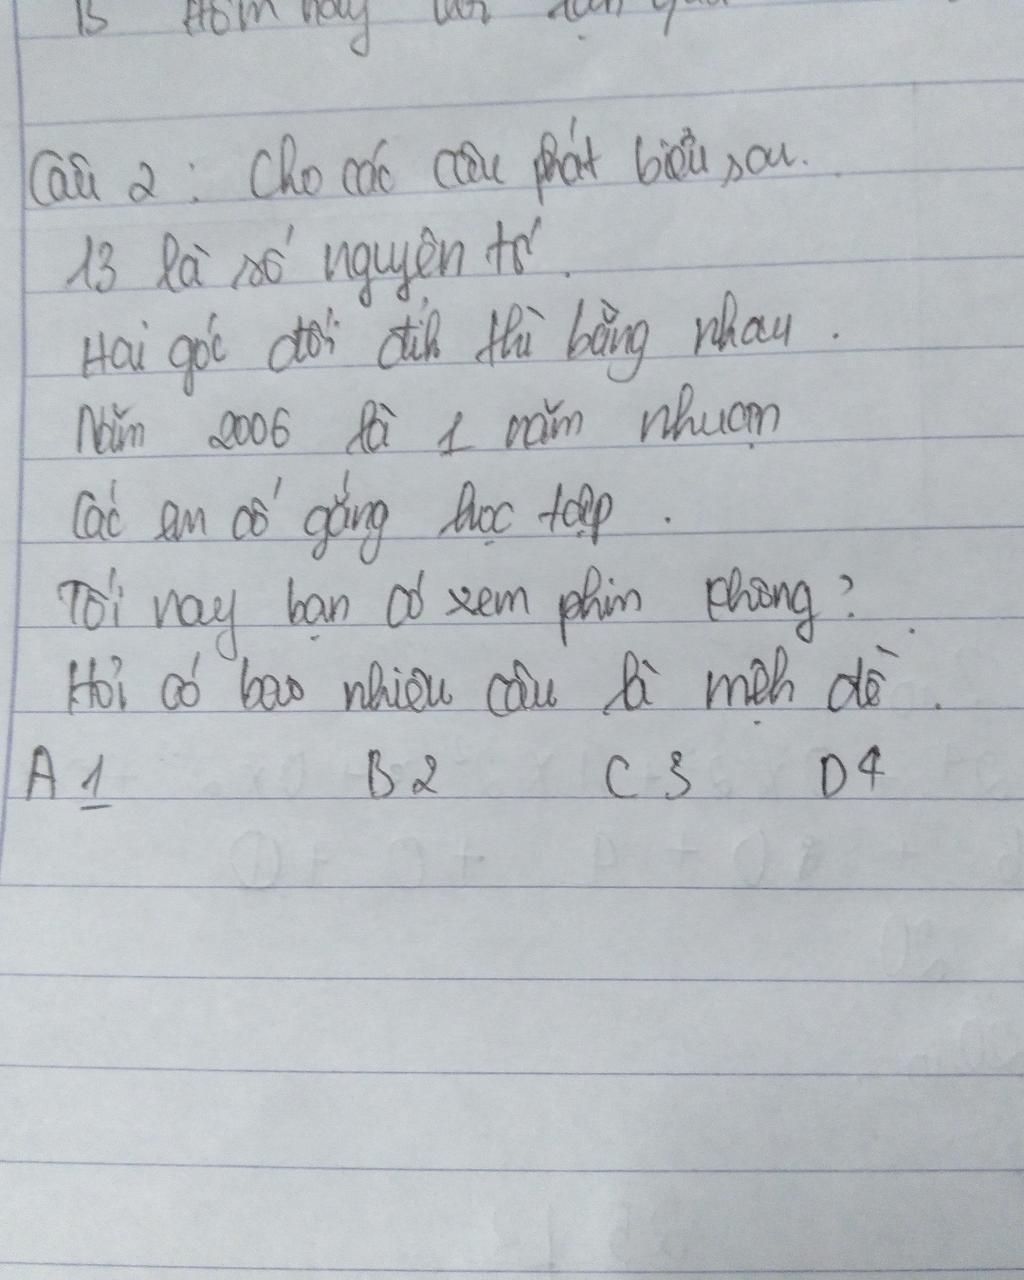 B Hôm nay
Câu 2 : Cho các câu phát biểu sau.
13 là số nguyên tố.
Hai góc đối đỉnh thì bằng nhau .
Năm 2006 là 1 năm nhuận
Các em cố gắng học tập .
Tối nay bạn có xem phim không ?
Hỏi có bao nhiêu câu là mệnh đề .
A 1 B 2 C 3 D 4